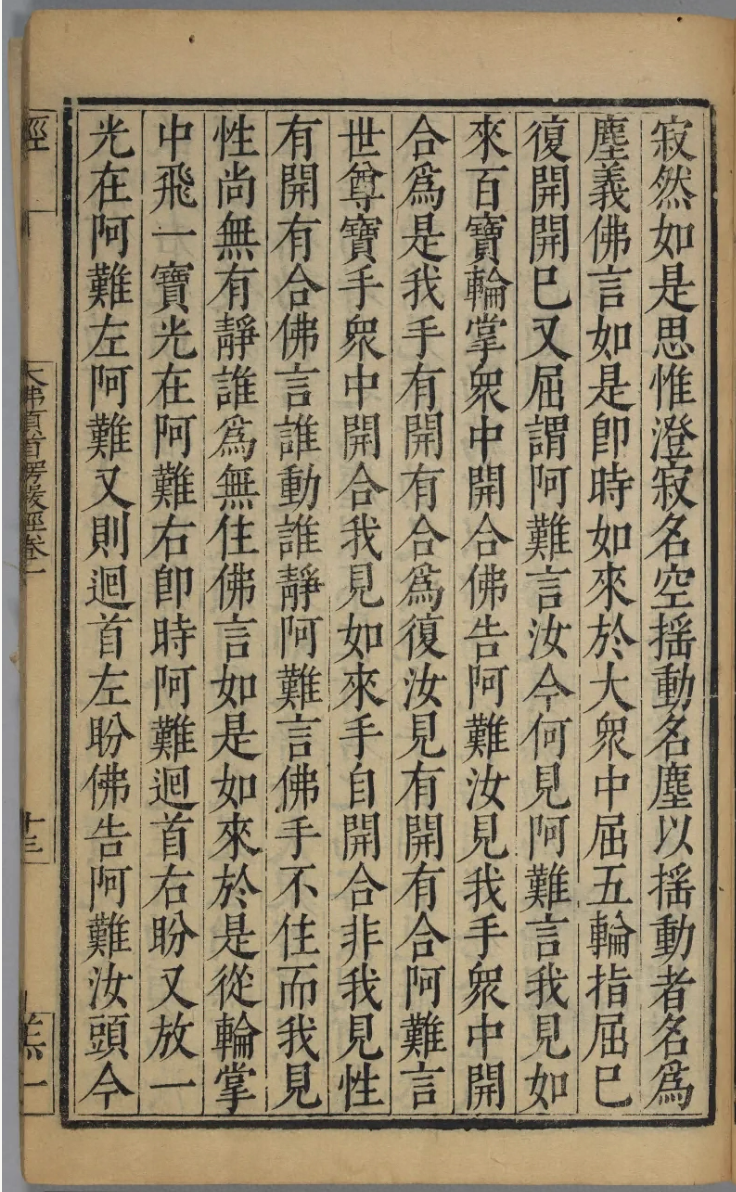 寂然如是思惟澄寂名空揺動名塵以揺動者名爲
塵義佛言如是卽時如來於大衆中屈五輪指屈已
復開開已又屈謂阿難言汝今何見阿難言我見如
來百寶輪掌衆中開合佛告阿難汝見我手衆中開
合爲是我手有開有合爲復汝見有開有合阿難言
世尊寶手衆中開合我見如來手自開合非我見性
有開有合佛言誰動誰靜阿難言佛手不住而我見
性尚無有靜誰爲無住佛言如是如來於是從輪掌
中飛一寶光在阿難右卽時阿難迴首右盼又放一
光在阿難左阿難又則迴首左盼佛告阿難汝頭今
經
大佛頂首楞嚴經卷一
十三